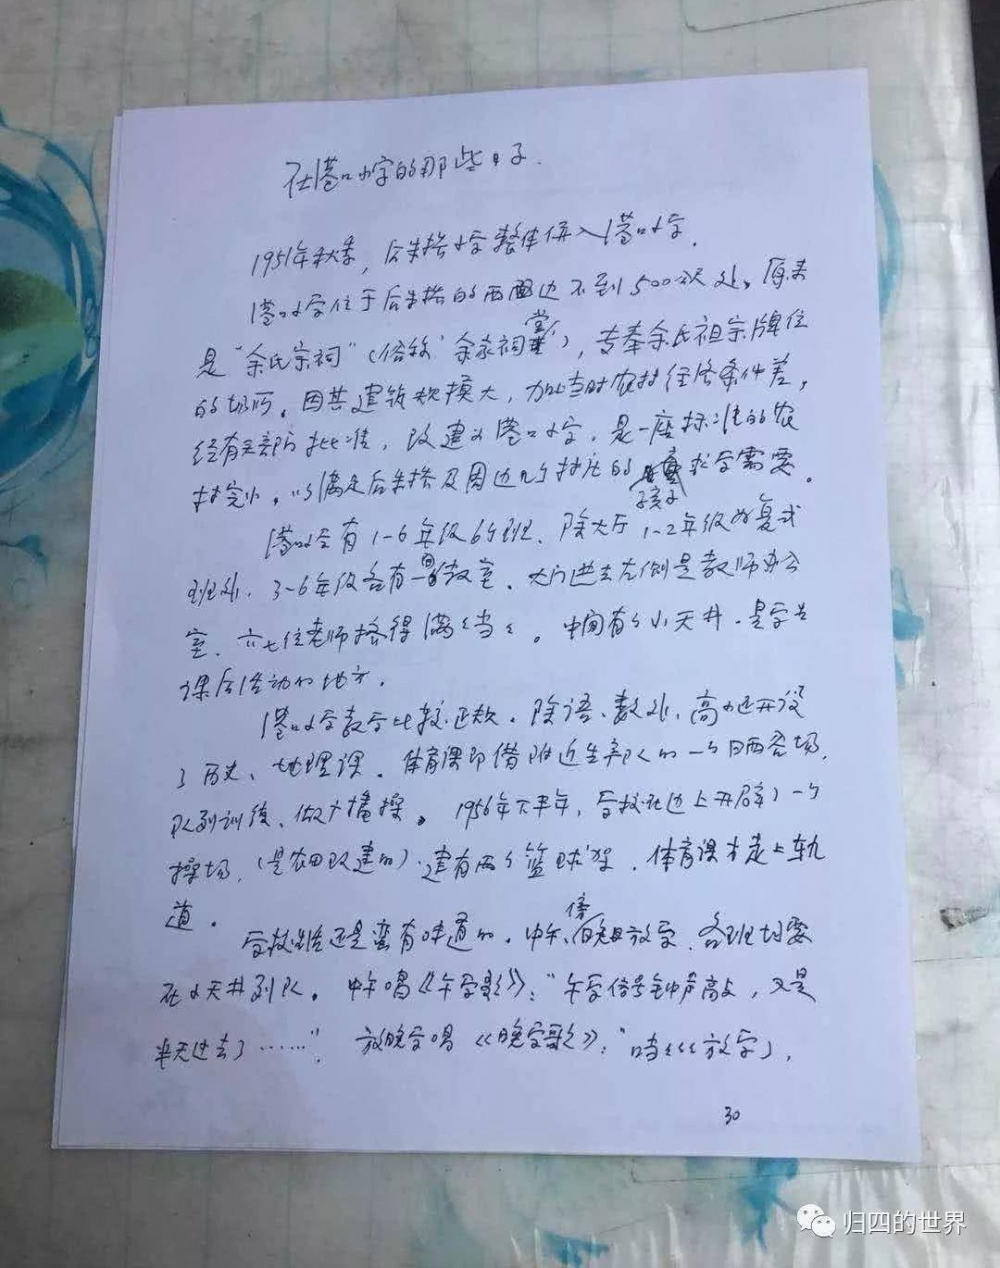 在港口小学的那些日子.
1951年秋季，后朱搭小学整体併入港口小学.
港口小学位于后朱搭的西面边不到500米处。原来
是“余氏宗祠”（俗称‘余家祠堂’），专奉余氏祖宗牌位
的场所。因其建筑规模大，加上当时农村经济条件差，
经有关部门批准，改建为港口小学，是一座标准的农
村完小，以满足后朱搭及周边几个村庄的孩子求学需要.
港口小学有1-6年级6个班、除大厅1-2年级为复式
班外，3-6年级各有一间教室。大门进去左侧是教师办公
室，六七位老师挤得满々当々。中间有个小天井，是学生
课后活动的地方.
港口小学教学比较正规。除语、数外，高小还开设
了历史、地理课。体育课即借附近生产队的一个晒谷场，
队列训练、做广播操。1956年下半年，学校北边上开辟了一个
操场，（是农田改建的）建有两个篮球架，体育课才走上轨
道.
学校生活还是蛮有味道的。中午、傍晚放学，各班均要
在小天井列队。中午唱《午学歌》：“午学信号钟声高々，又是
半天过去了……”，放晚学唱《晚学歌》：“噹々々々放学了，
30
归四的世界